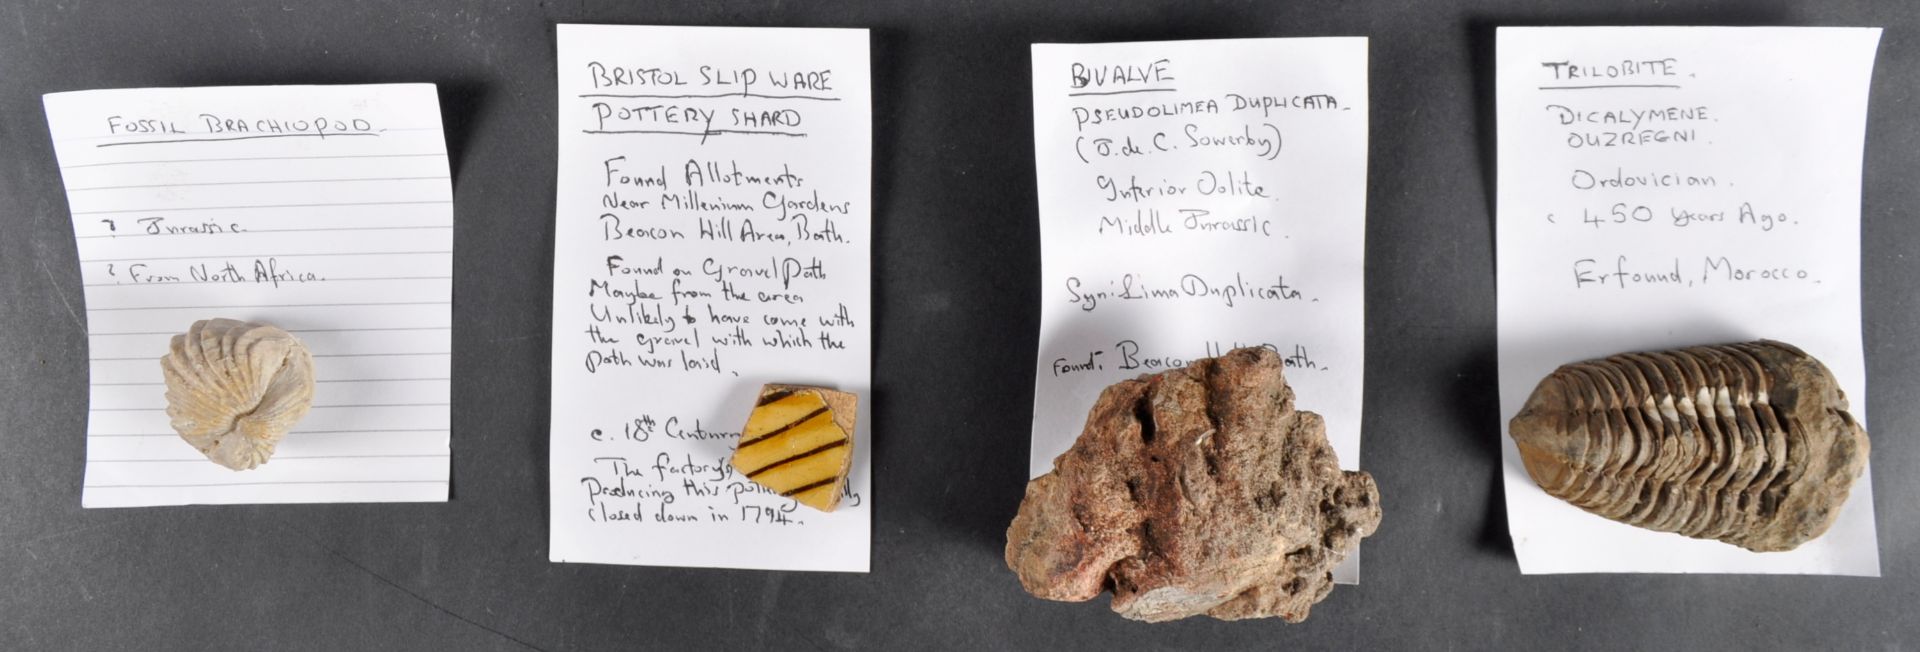 FOSSIL BRACHIOPOD.
? Jurassic.
? From North Africa.
BRISTOL SLIP WARE
POTTERY SHARD
Found Allotments
Near Millenium Gardens
Beacon Hill Area, Bath.
Found on Gravel Path
Maybe from the area
Unlikely to have come with
the gravel with which the
path was laid.
c. 18th Century
The factory
producing this
closed down in 1794.
BIVALVE
PSEUDOLIMEA DUPLICATA.
(J. de. C. Sowerby)
Inferior Oolite.
Middle Jurassic.
Syn: Lima Duplicata.
Found: Beacon Bath.
TRILOBITE.
DICALYMENE.
OUZREGNI.
Ordovician.
c 450 years Ago.
Erfound, Morocco.